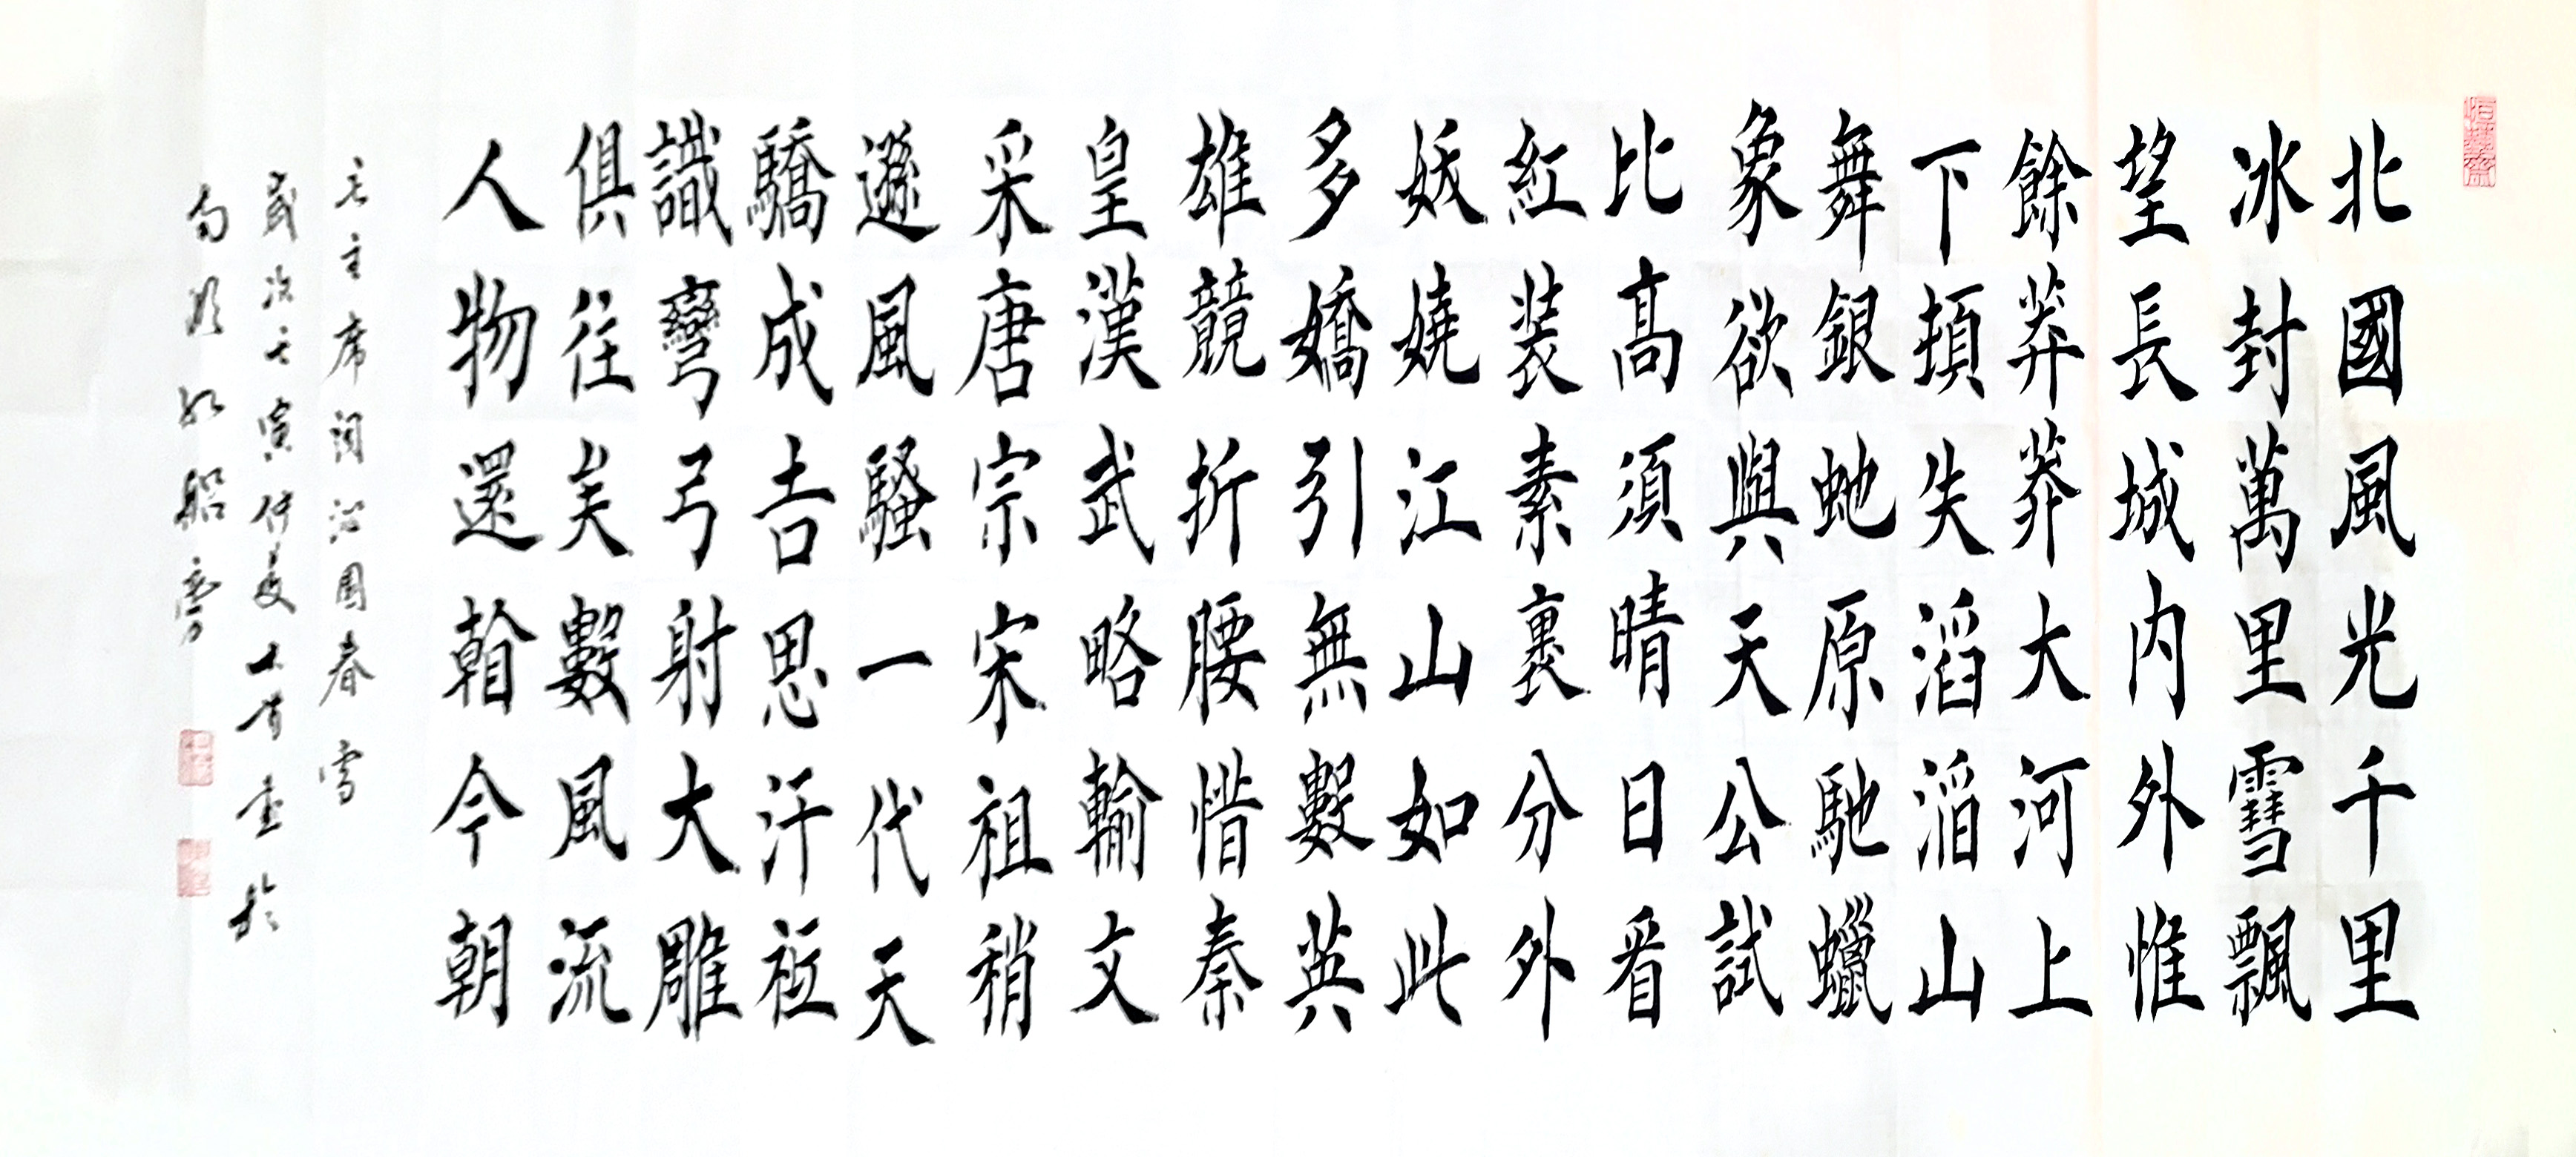 北國風光千里
冰封萬里雪飄
望長城内外惟
餘莽莽大河上
下頓失滔滔山
舞銀虵原馳蠟
象欲與天公試
比高須晴日看
紅装素裹分外
妖嬈江山如此
多嬌引無數英
雄競折腰惜秦
皇漢武略輸文
采唐宗宋祖稍
遜風騷一代天
驕成吉思汗衹
識彎弓射大雕
俱往矣數風流
人物還看今朝
毛主席詞沁園春雪
歲次壬寅仲夏書於
船齋